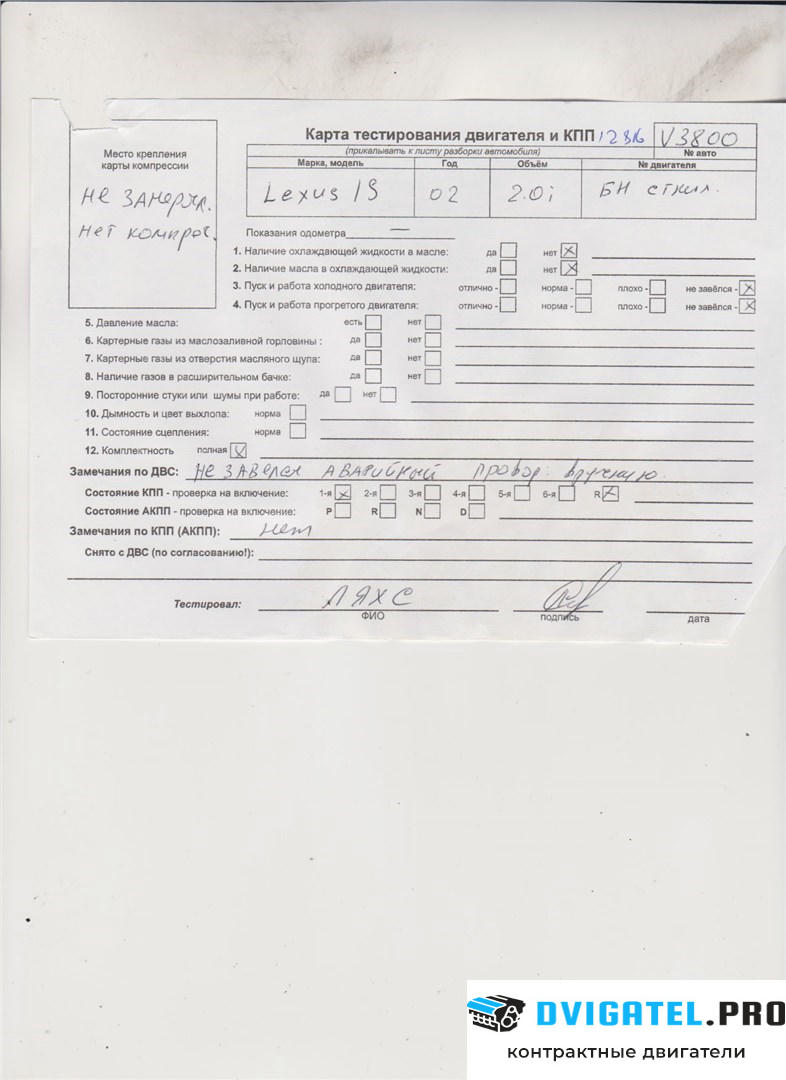 Карта тестирования двигателя и КПП 128к V3800
(прикалывать к листу разборки автомобиля) № авто
Место крепления
карты компрессии
не замерял.
нет компрес.
Марка, модель Год Объём № двигателя
Lexus IS 02 2.0i БН
Показания одометра —
1. Наличие охлаждающей жидкости в масле: да нет
2. Наличие масла в охлаждающей жидкости: да нет
3. Пуск и работа холодного двигателя: отлично - норма - плохо - не завёлся -
4. Пуск и работа прогретого двигателя: отлично - норма - плохо - не завёлся -
5. Давление масла: есть нет
6. Картерные газы из маслозаливной горловины : да нет
7. Картерные газы из отверстия масляного щупа: да нет
8. Наличие газов в расширительном бачке: да нет
9. Посторонние стуки или шумы при работе: да нет
10. Дымность и цвет выхлопа: норма
11. Состояние сцепления: норма
12. Комплектность полная
Замечания по ДВС: не завелся аварийный провор. вручную.
Состояние КПП - проверка на включение: 1-я 2-я 3-я 4-я 5-я 6-я R
Состояние АКПП - проверка на включение: P R N D
Замечания по КПП (АКПП): нет
Снято с ДВС (по согласованию!):
Тестировал: ЛЯХ С
ФИО подпись дата
DVIGATEL.PRO
контрактные двигатели